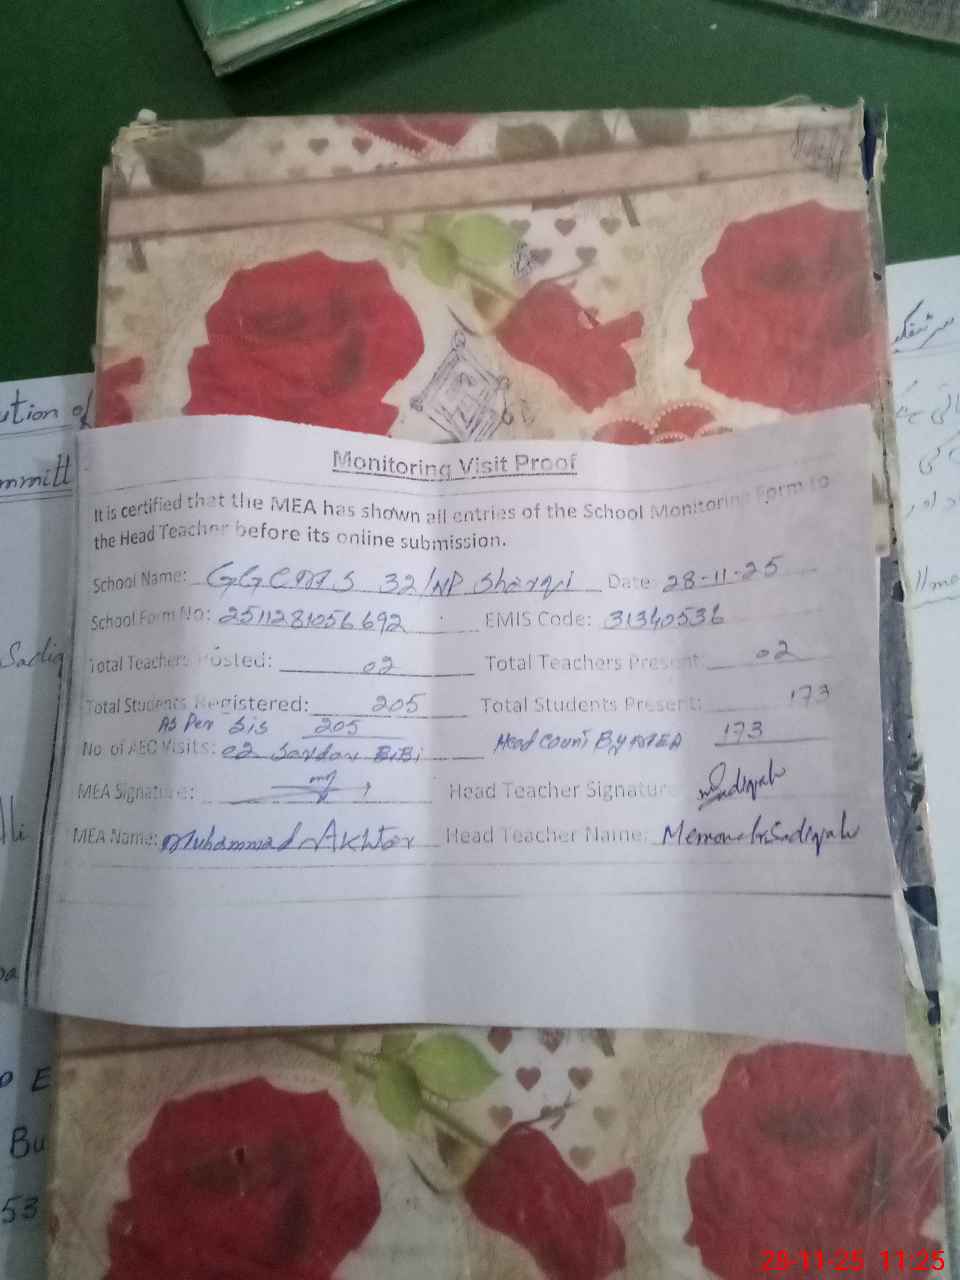 ution of
mmitt
Monitoring Visit Proof
It is certified that the MEA has shown all entries of the School Monitoring Form to
the Head Teacher before its online submission.
School Name: GGCMS 32/NP Sharqi Date: 28-11-25
School Form No: 2511281056692 EMIS Code: 31340536
Total Teachers Posted: 02 Total Teachers Present: 02
Total Students Registered: 205 Total Students Present: 173
As Per Sis 205 Head Count By MEA 173
No of AEO Visits: 02 Sardar BiBi
MEA Signature: Head Teacher Signature: Sadiqah
MEA Name: Muhammad Akhtar Head Teacher Name: Memonah Sadiqah
Sadiq
Bu
53
28-11-25 11:25